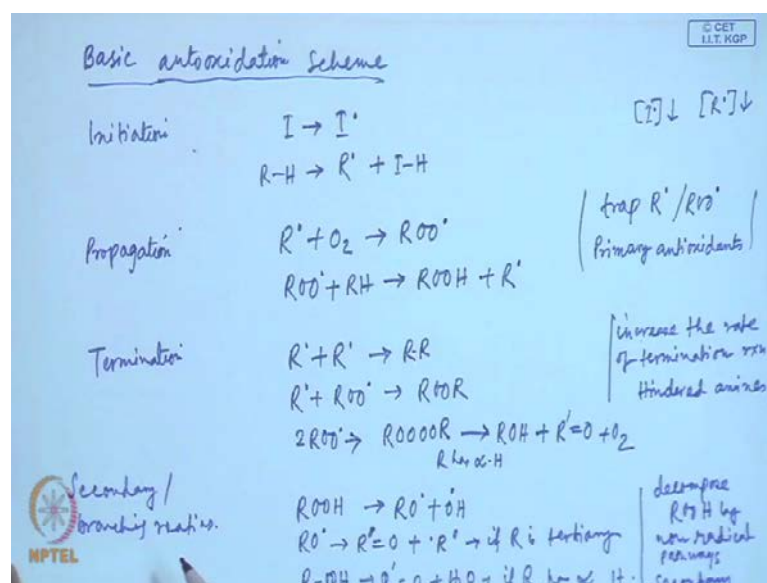 © CET
I.I.T. KGP
Basic autooxidation Scheme
Initiation
I → I•
[I•]↓ [R•]↓
R-H → R• + I-H
Propagation
R• + O2 → ROO•
ROO• + RH → ROOH + R•
trap R•/ROO•
Primary antioxidants
Termination
R• + R• → R-R
R• + ROO• → ROOR
2ROO• → ROOOOR → ROH + R'=O + O2
R has α-H
increase the rate
of termination rxn
Hindered amines
Secondary/
branching
ROOH → RO• + •OH
RO• → R'=O + •R" → if R is tertiary
decompose
ROOH by
non radical
pathways
NPTEL